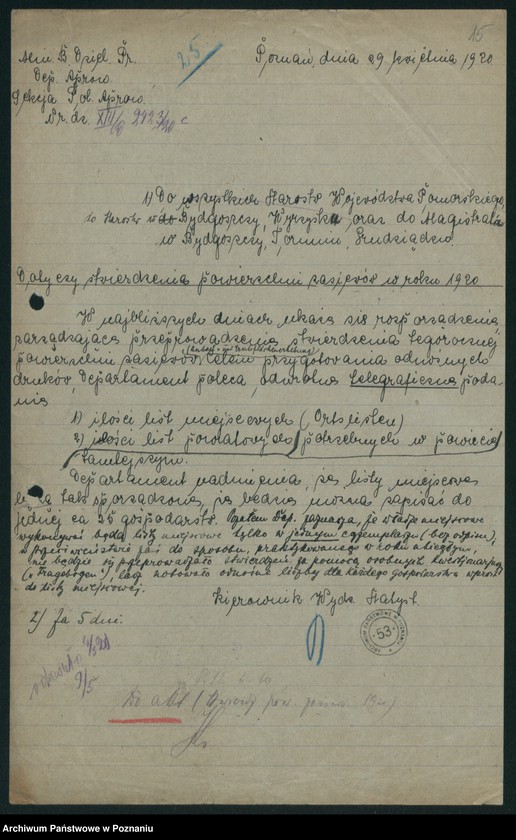 15
Min. B. Dziel. Pr.
Dep. Aprow.
Sekcja Pol. Aprow.
Nr. dz. XII/8 2923/20 c
25
Poznań, dnia 29 kwietnia 1920
1) Do wszystkich Starostw Województwa Pomorskiego,
to Starostw w Bydgoszczy, Wyrzysku oraz do Magistratu
w Bydgoszczy, Toruniu, Grudziądzu.
Dotyczy stwierdzenia powierzchni zasiewów w roku 1920
W najbliższych dniach ukaże się rozporządzenie
zarządzające przeprowadzenie stwierdzenia tegorocznej
powierzchni zasiewów. Celem przygotowania odnośnych
druków, Departament poleca odwrotne telegraficzne poda-
nie
1) ilości list miejscowych (Ortslisten)
2) ilości list powiatowych potrzebnych w powiecie
tamtejszym.
Departament nadmienia, że listy miejscowe
są tak sporządzone, że będzie można zapisać do
jednej ca 25 gospodarstw. Dep. zaznacza, że w tasze miejscowe
wykonywać będą listy miejscowe tylko w jednym egzemplarzu (bez odpisu),
w przeciwieństwie zaś do sposobu, praktykowanego w roku ubiegłym,
nie będzie się przeprowadzało stwierdzeń za pomocą osobnych kwestjonarjuszy
(Fragebogen), lecz notowało odnośne liczby dla każdego gospodarstwa wprost
do listy miejscowej.
Kierownik Wydz. Statyst.
2) Za 5 dni.
ARCHIWUM PAŃSTWOWE W POZNANIU
53
9/5
Do akt
Archiwum Państwowe w Poznaniu